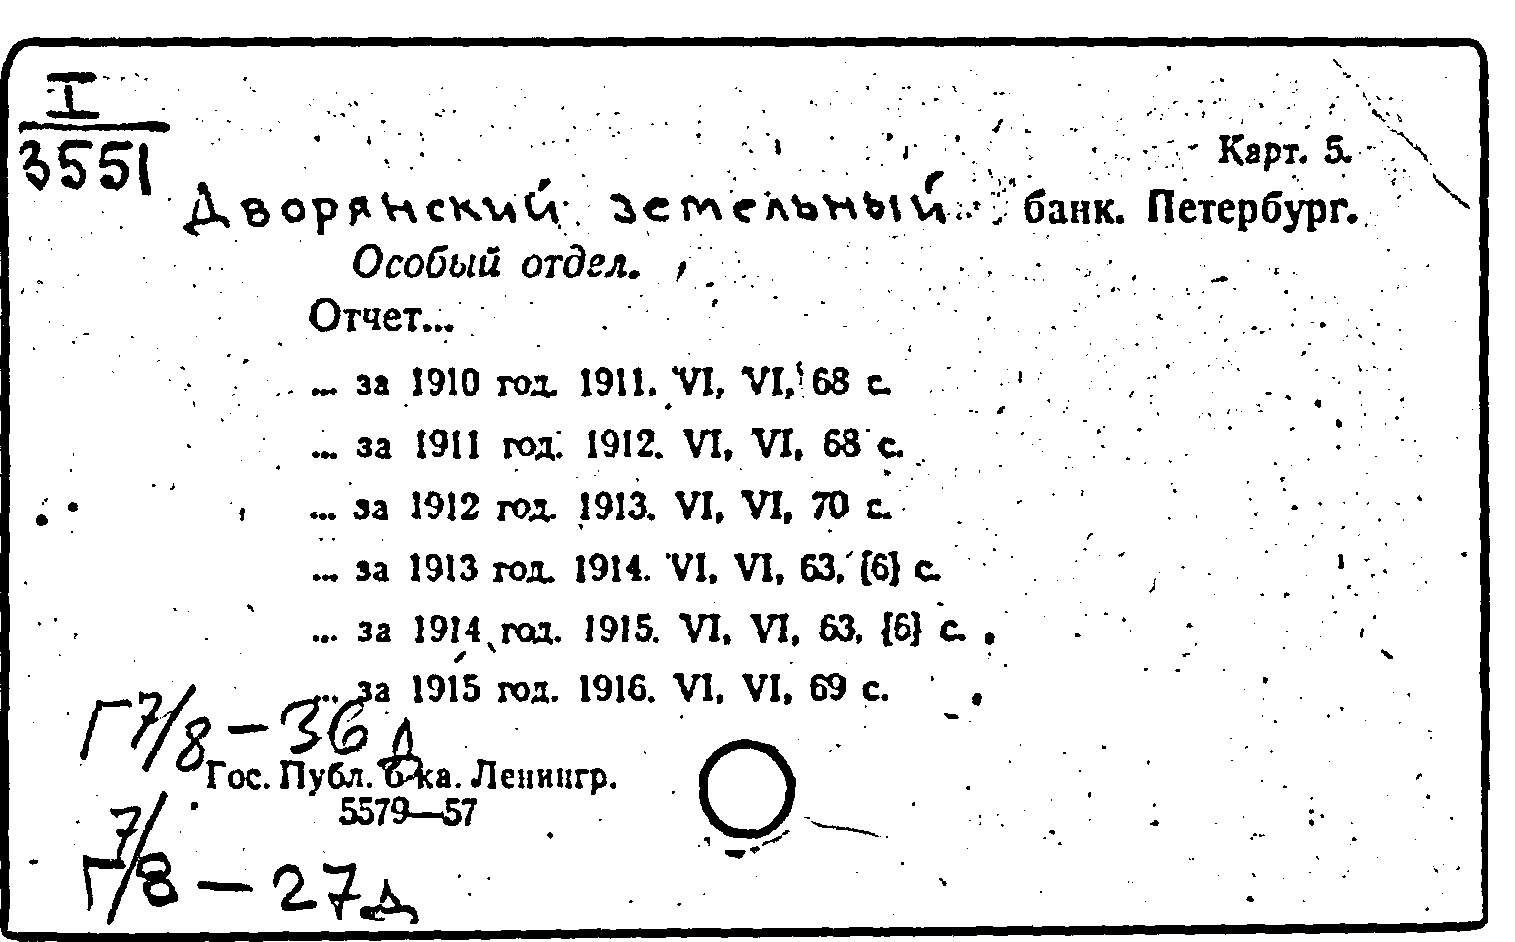 I
3551
Карт. 5.
Дворянский земельный банк. Петербург.
Особый отдел.
Отчет...
... за 1910 год. 1911. VI, VI, 68 с.
... за 1911 год. 1912. VI, VI, 68 с.
... за 1912 год. 1913. VI, VI, 70 с.
... за 1913 год. 1914. VI, VI, 63, [6] с.
... за 1914 год. 1915. VI, VI, 63, [6] с.
... за 1915 год. 1916. VI, VI, 69 с.
Г7/8-36д
Гос. Публ. б-ка. Ленингр.
5579—57
Г7/8-27д